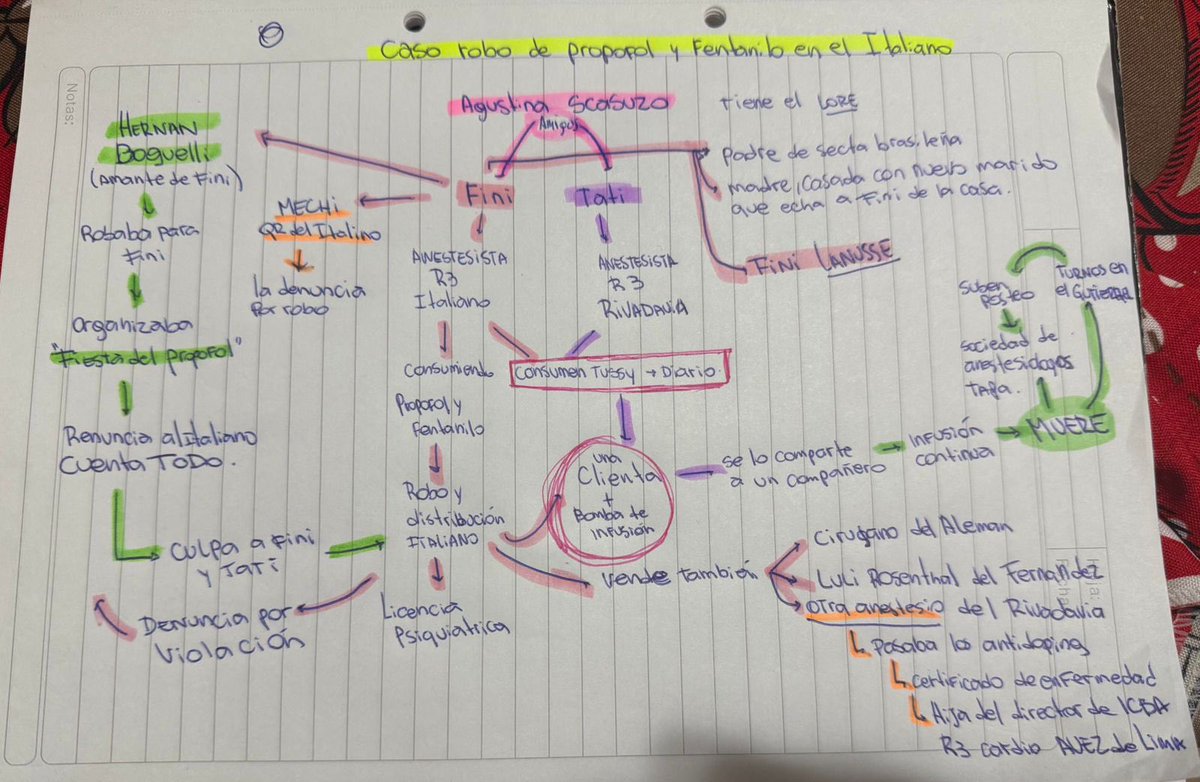 Notas:
Caso robo de propofol y Fentanilo en el Italiano
Agustina SCOSUZO
tiene el LORE
Amigos
HERNAN
Boguelli
(Amante de Fini)
Robaba para
Fini
Organizaba
"Fiesta del propofol"
Renuncia al Italiano
Cuenta TODO.
Culpa a Fini
y Tati
Denuncia por
violación
MECHI
QR del Italino
la denuncia
por robo
Fini
ANESTESISTA
R3
Italiano
Consumiendo
Propofol y
Fentanilo
Robo y
distribución
ITALIANO
Licencia
Psiquiatrica
Tati
ANESTESISTA
R3
RIVADAVIA
Consumen TUSSY → Diario.
una
Clienta
+
Bomba de
INFUSIÓN
padre de secta brasileña
madre, casada con nuevo marido
que echa a Fini de la casa.
FINI LANUSSE
se lo comparte
a un compañero
INFUSIÓN
continua
MUERE
TURNOS en
el GUTIERREZ
suben
posteo
sociedad de
anestesiologos
tapa.
vende también
Cirujano del Aleman
Luli Rosenthal del Fernandez
Otra anestesio del Rivadavia
Pasaba los antidoping
certificado de enfermedad
Hija del director de ICBA
R3 cardio ALVEZ de Lima